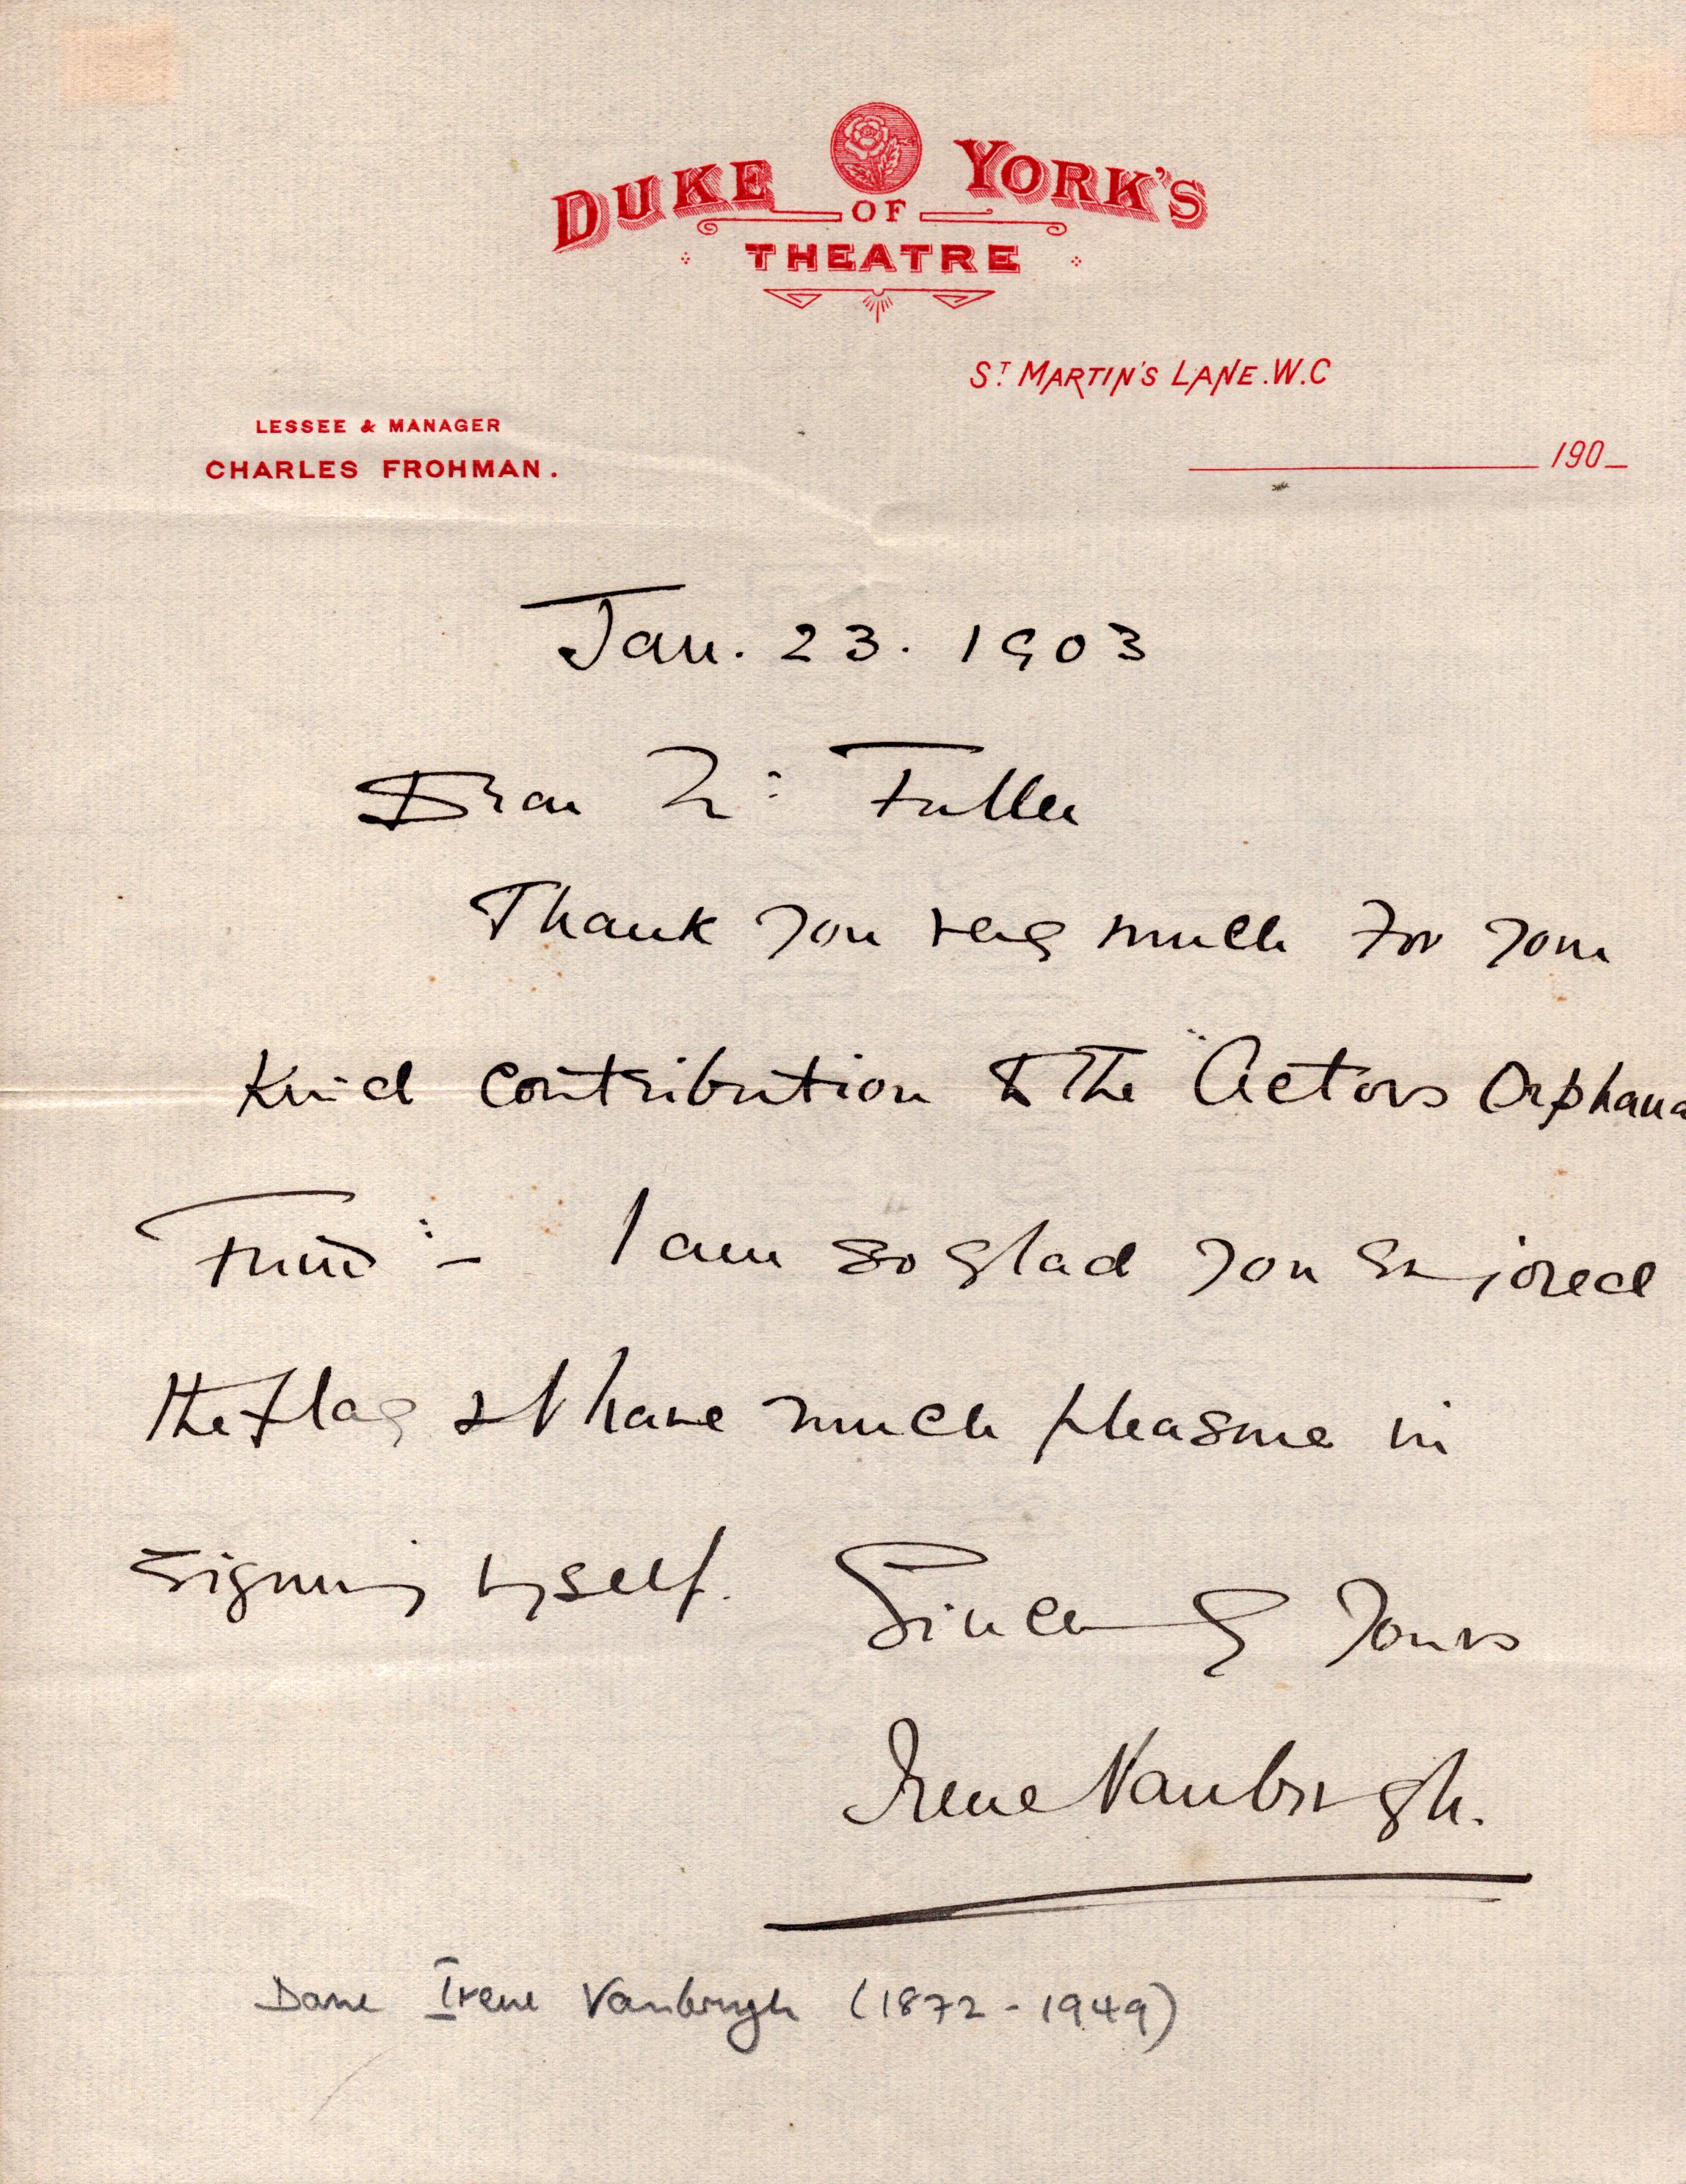 DUKE OF YORK'S
THEATRE
ST MARTIN'S LANE. W.C
LESSEE & MANAGER
CHARLES FROHMAN.
190_
Jan. 23. 1903
Dear Mr: Fuller
Thank you very much for your
kind contribution to the "Actors Orphana
Fund" - I am so glad you enjoyed
the play & I have much pleasure in
signing myself. Sincerely Yours
Irene Vanbrugh.
Dame Irene Vanbrugh (1872 - 1949)